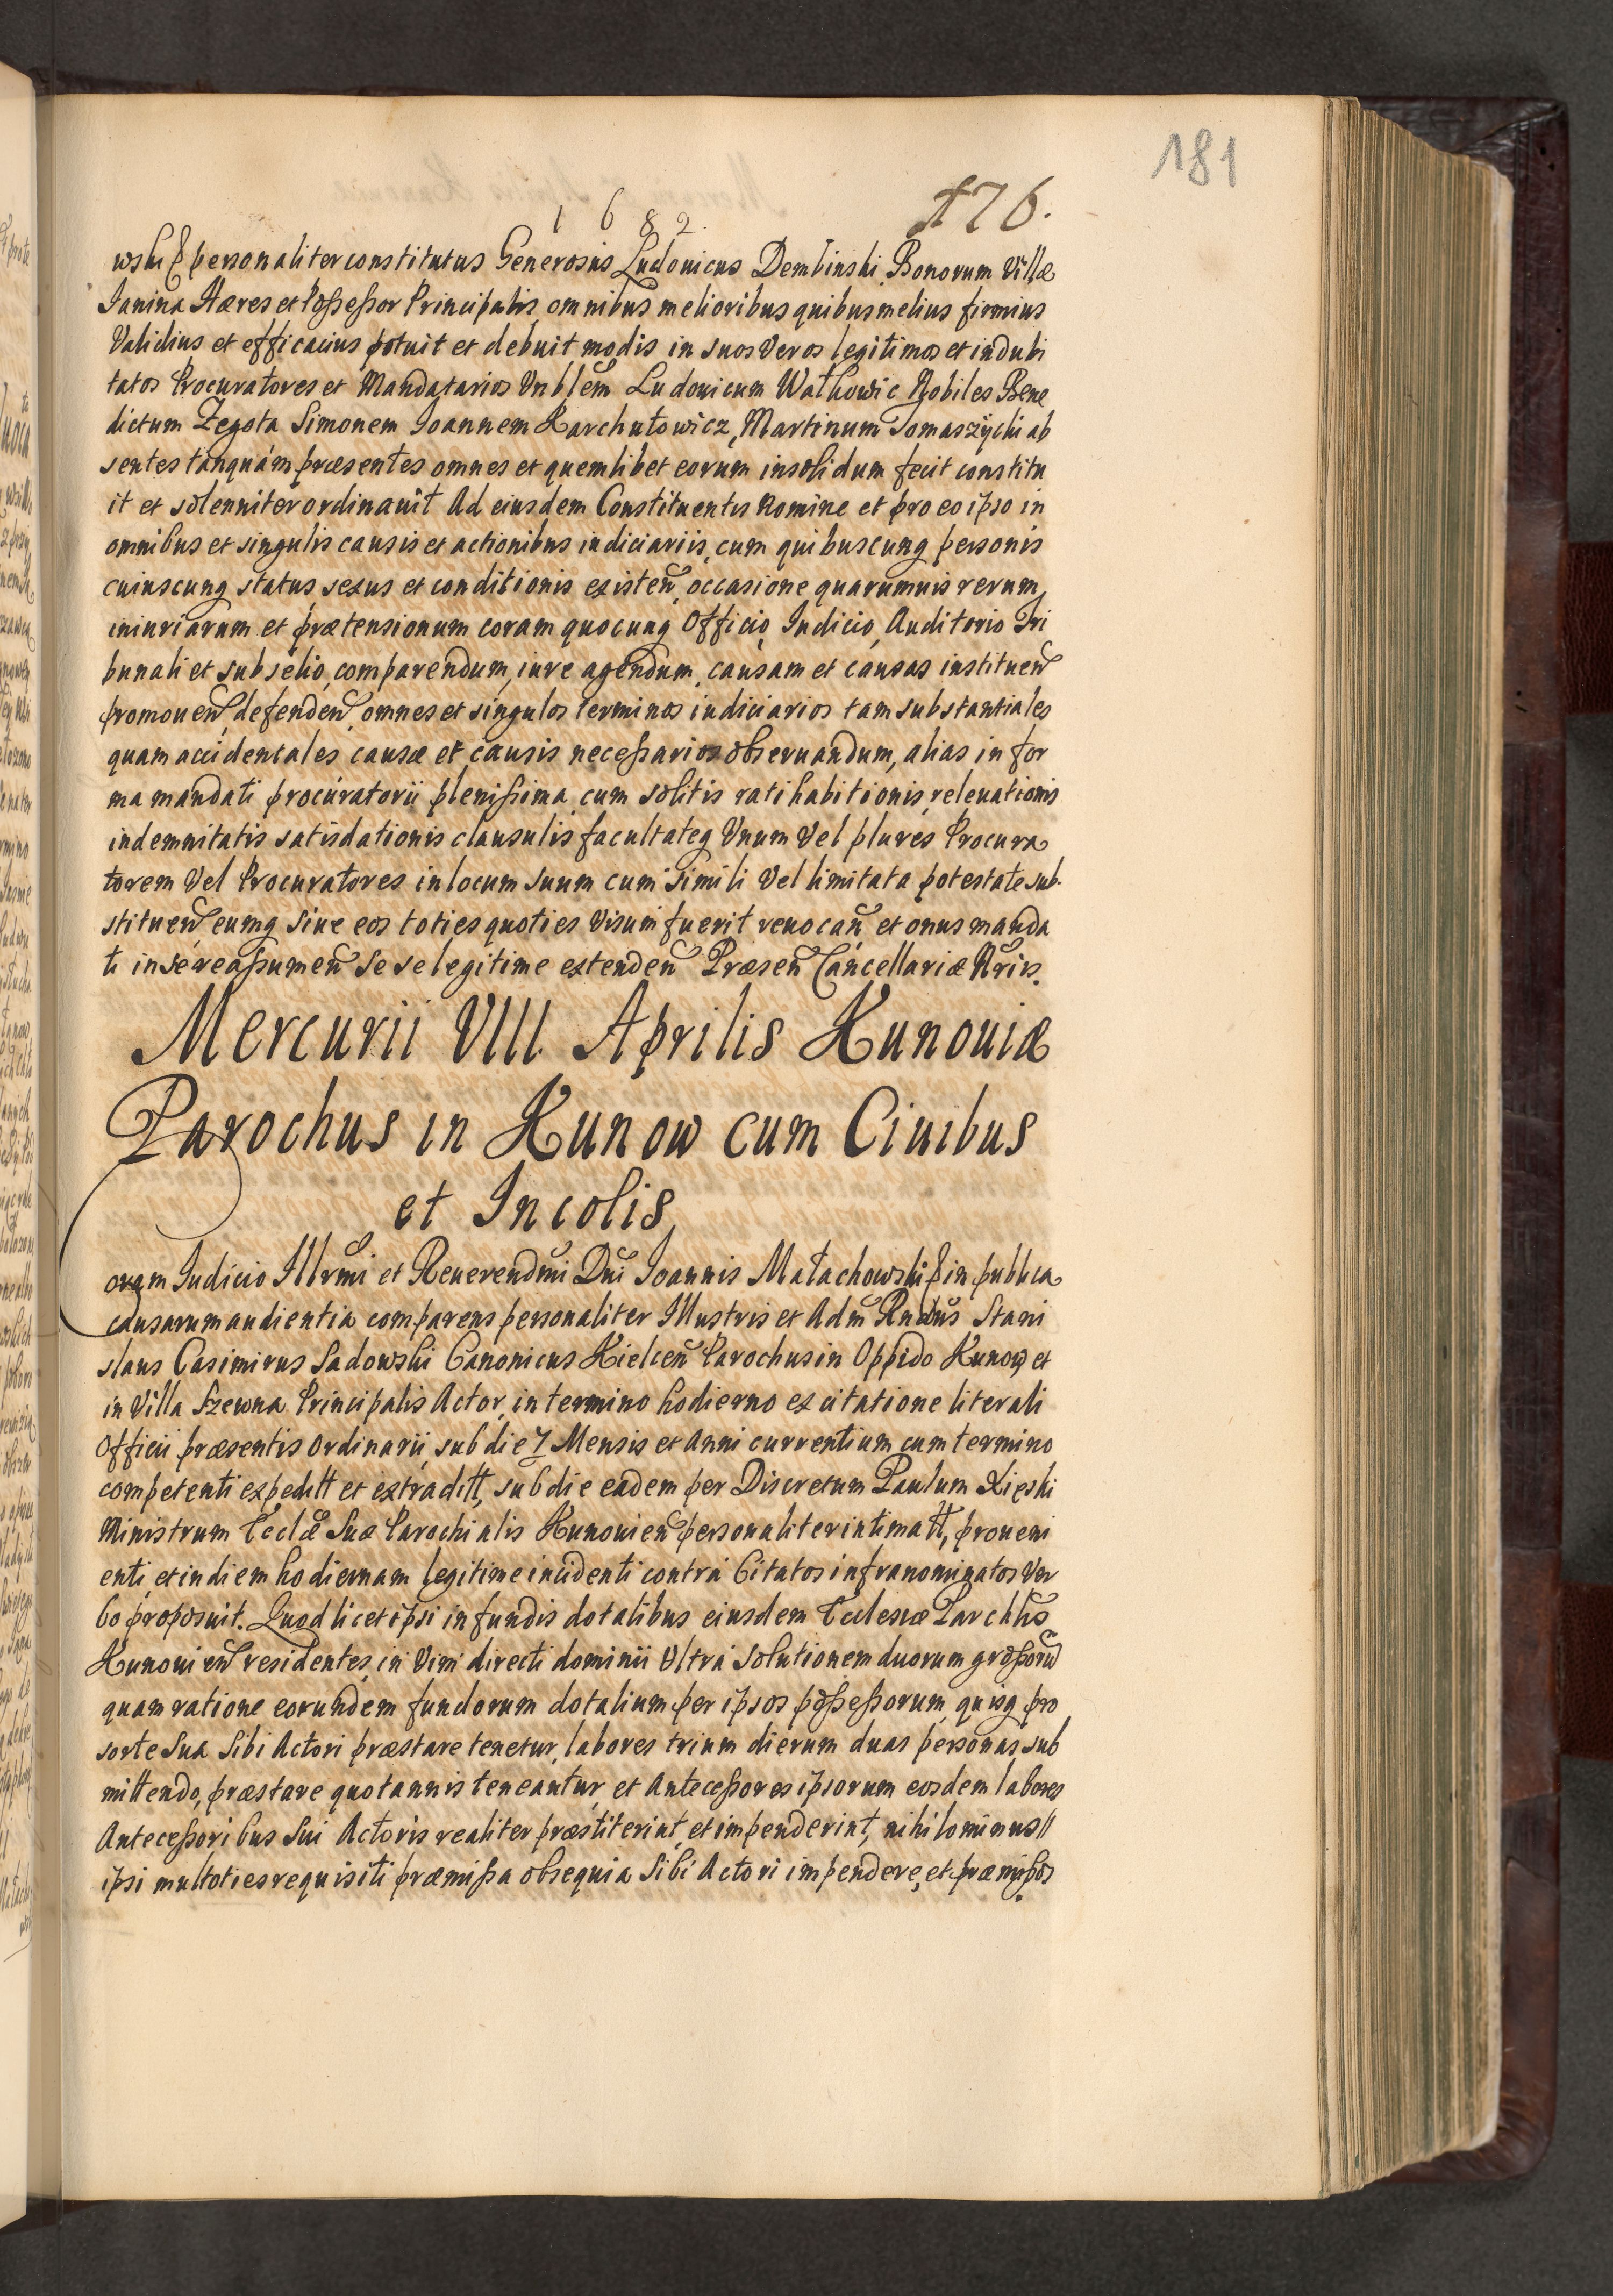 181
176.
1 6 8 2.
wski & personaliter constitutus Generosus Ludouicus Dembinski Bonorum Villæ
Janina Hæres et Possessor Principalis, omnibus melioribus quibus melius firmius
Validius et efficacius potuit et debuit modis in suos Veros legitimos et indubi
tatos Procuratores et Mandatarios Vnblem Ludouicum Wałkowic Nobiles Bene
dictum Zegota Simonem Joannem Karchutowicz, Martinum Tomaszycki ab
sentes tanquám præsentes omnes et quemlibet eorum insolidum fecit constitu
it et solenniter ordinauit Ad eiusdem Constituentis Nomine et pro eo ipso in
omnibus et singulis causis et actionibus iudiciariis, cum quibuscunq personis
cuiuscunq status, sexus et conditionis existeñ, occasione quarumuis rerum,
iniuriarum et prætensionum coram quocunq Officio, Iudicio, Auditorio Tri
bunali et subselio, comparendum, iure agendum, causam et causas instituen͂
promouen͂, defenden͂ omnes et singulos terminos iudiciarios tam substantiales
quam accidentales causæ et causis necessarios obseruandum, alias in for
ma mandati procuratorii plenissima, cum solitis ratihabitionis, releuationis
indemnitatis satisdationis clausulis facultateq Vnum Vel plures Procura
torem Vel Procuratores in locum suum cum simili Vel limitata potestate sub
stituen͂ eumq siue eos toties quoties Visum fuerit reuocan͂ et onus manda
ti in se reassumen͂ Se se legitime extenden͂ Præsen͂ Cáncellariæ Nris.
Mercurii VIII. Aprilis Kunouiæ
Parochus in Kunow cum Ciuibus
et Incolis
oram Iudicio Illrmi et Reuerendmi Dni Joannis Małachowski & in publica
causarum audientia comparens personaliter Illustris et Adm Rndus Stani
slaus Casimirus Sadowski Canonicus Kielcen͂ Parochus in Oppido Kunow et
in Villa Szewna Principalis Actor, in termino hodierno ex citatione literali
Officii præsentis Ordinarii, sub die 7 Mensis et Anni currentium cum termino
competenti expeditt et extraditt, sub die eadem per Discretum Paulum Kieski
Ministrum Ecclæ Suæ Parochialis Kunouien͂ personaliter intimatt, proueni
enti, et in diem hodiernam legitime incidenti contra Citatos infranominatos Ver
bo proposuit. Quod licet ipsi in fundis dotalibus eiusdem Ecclesiæ Parchlis
Kunouien͂ residentes, in Vim directi dominii Vltra solutionem duorum grossorũ
quam ratione eorundem fundorum dotalium per ipsos possessorum, quisq pro
sorte Sua Sibi Actori præstare tenetur, labores trium dierum duas personas sub
mittendo, præstare quotannis teneantur, et Antecessores ipsorum eosdem labores
Antecessoribus Sui Actoris realiter præstiterint, et impenderint, nihilominus
ipsi multoties requisiti præmissa obsequia Sibi Actori impendere, et præmissos